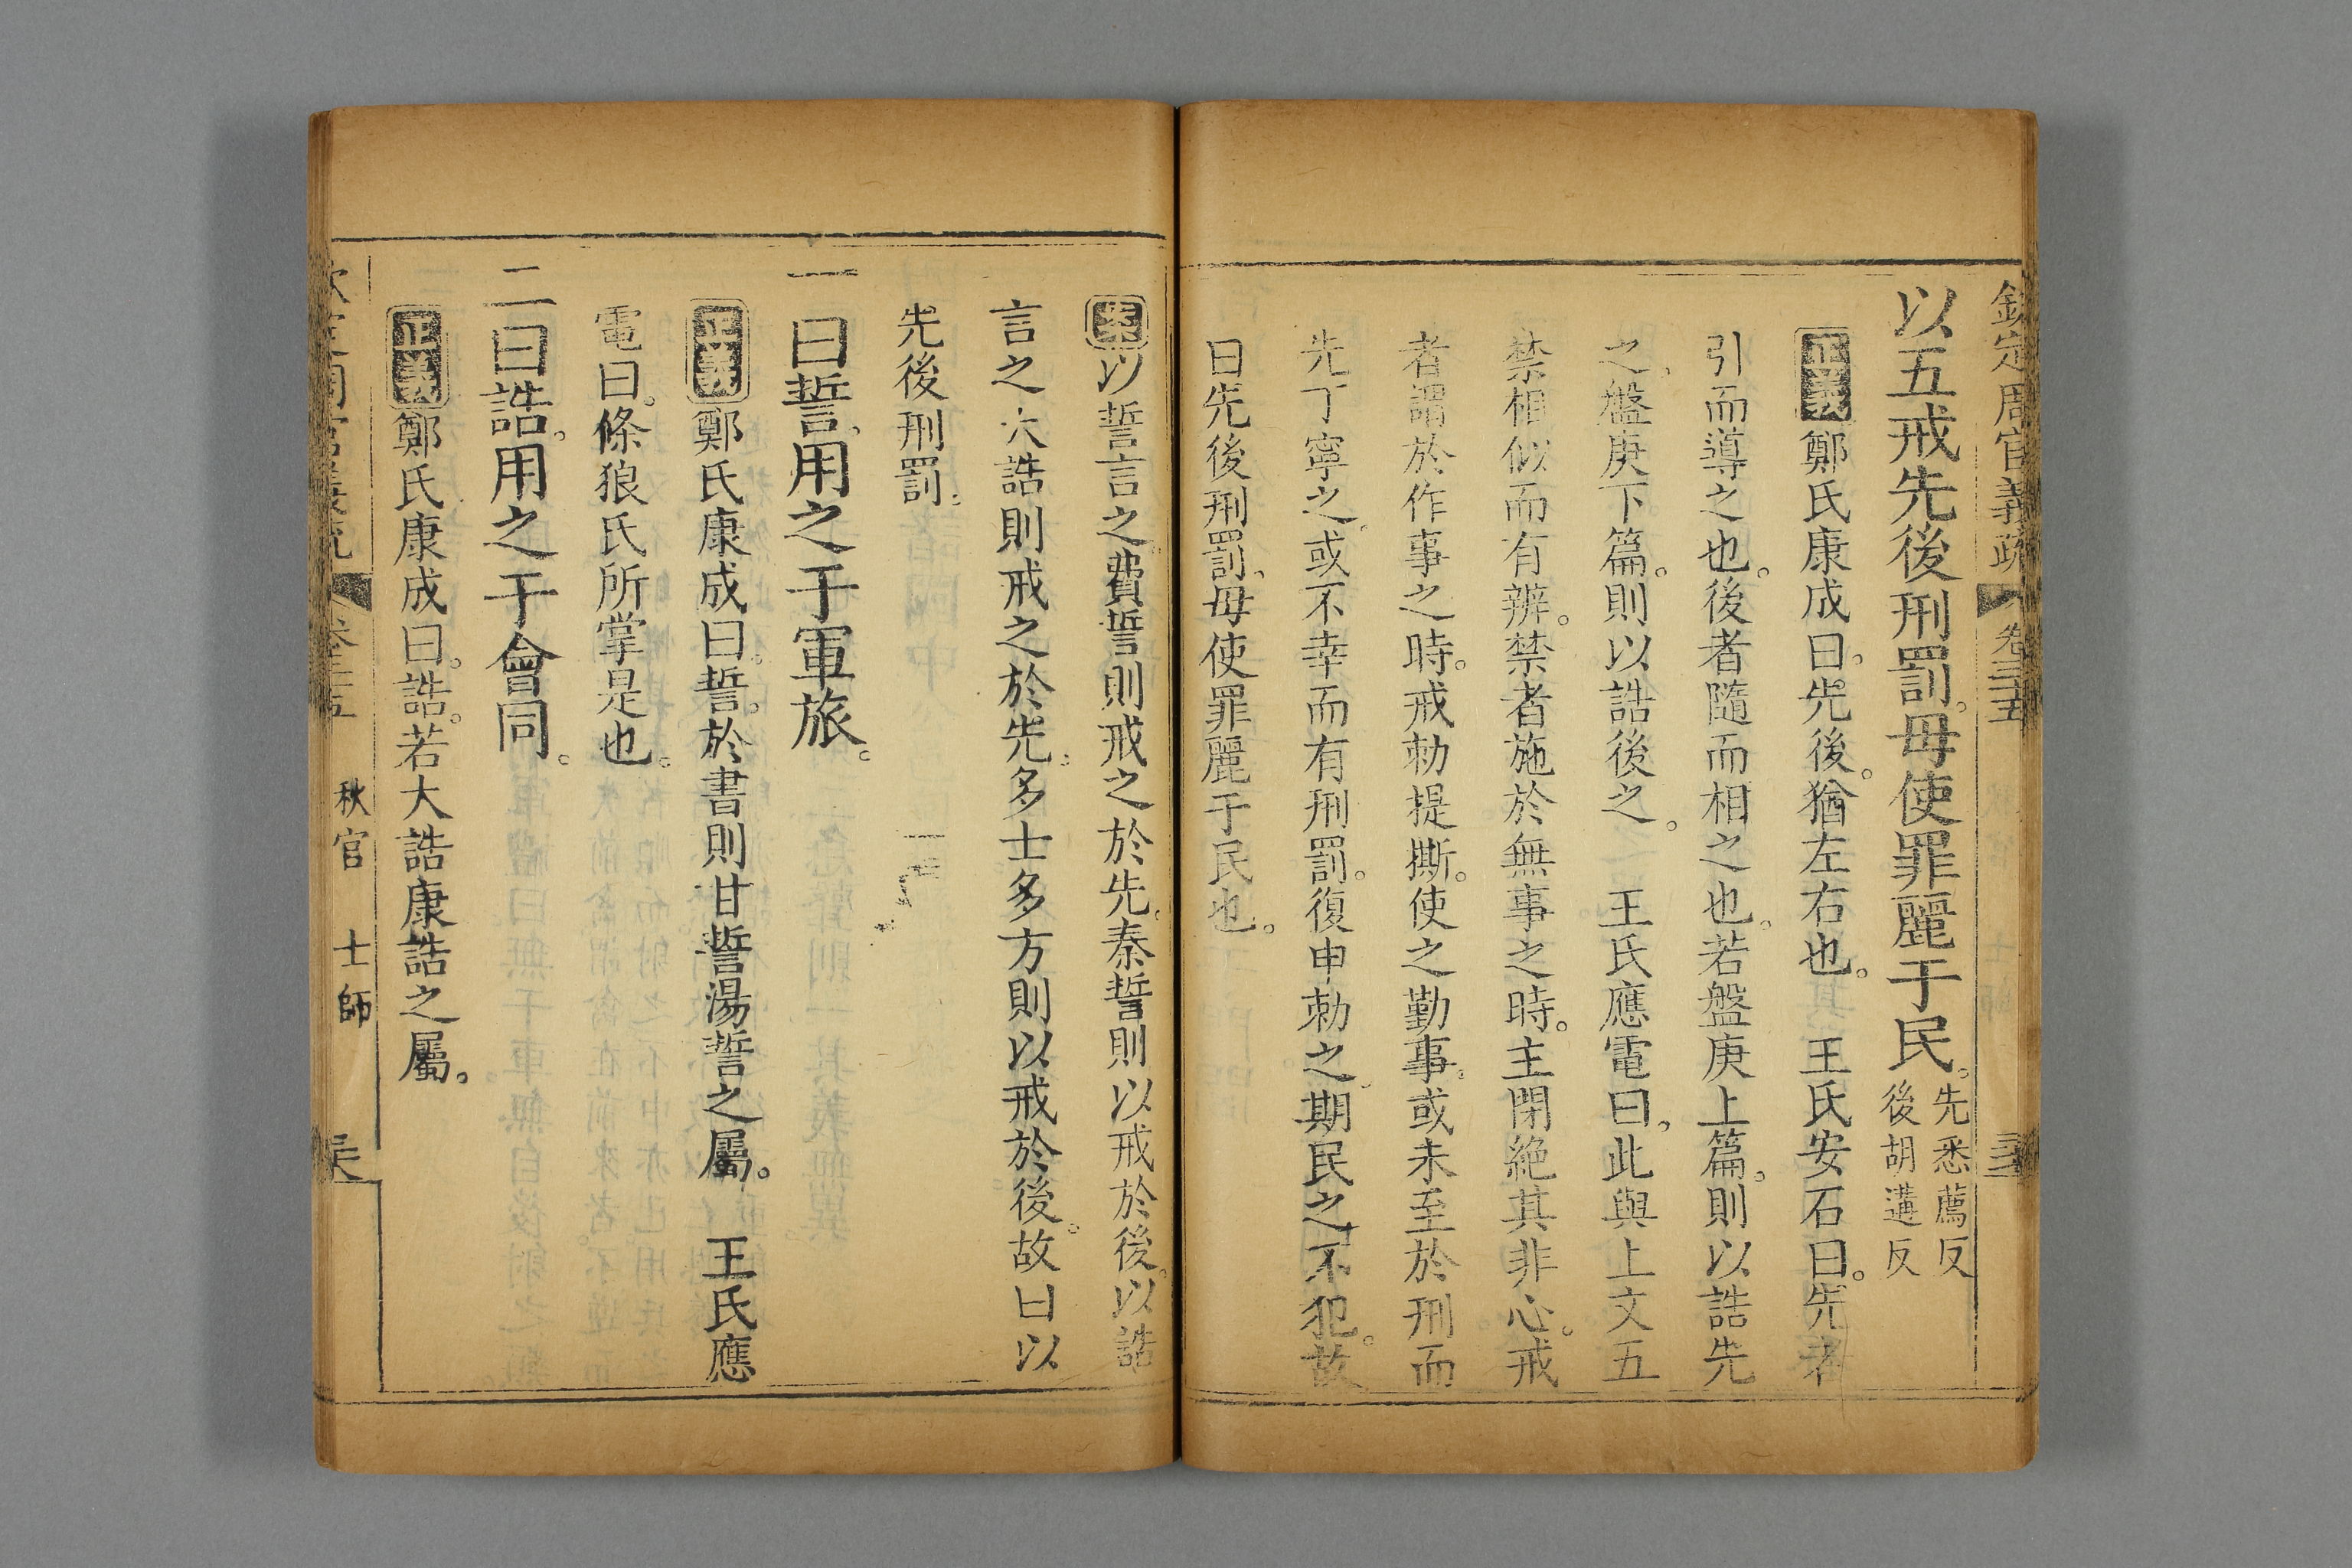 欽定周官義疏 卷三十五
以五戒先後刑罰。毋使罪麗于民。先悉薦反後胡遘反
正義鄭氏康成曰。先後。猶左右也。 王氏安石曰。先者
引而導之也。後者隨而相之也。若盤庚上篇。則以誥先
之。盤庚下篇。則以誥後之。 王氏應電曰。此與上文五
禁相似而有辨。禁者施於無事之時。主閉絶其非心。戒
者謂於作事之時。戒勅提撕。使之勤事。或未至於刑而
先丁寧之。或不幸而有刑罰。復申勅之。期民之不犯。故
曰先後刑罰。毋使罪麗于民也。
案以誓言之。費誓則戒之於先。秦誓則以戒於後。以誥
言之。大誥則戒之於先。多士多方則以戒於後。故曰以
先後刑罰。
一曰誓。用之于軍旅。
正義鄭氏康成曰。誓。於書則甘誓湯誓之屬。 王氏應
電曰。條狼氏所掌是也。
二曰誥。用之于會同。
正義鄭氏康成曰。誥。若大誥康誥之屬。
秋官 士師